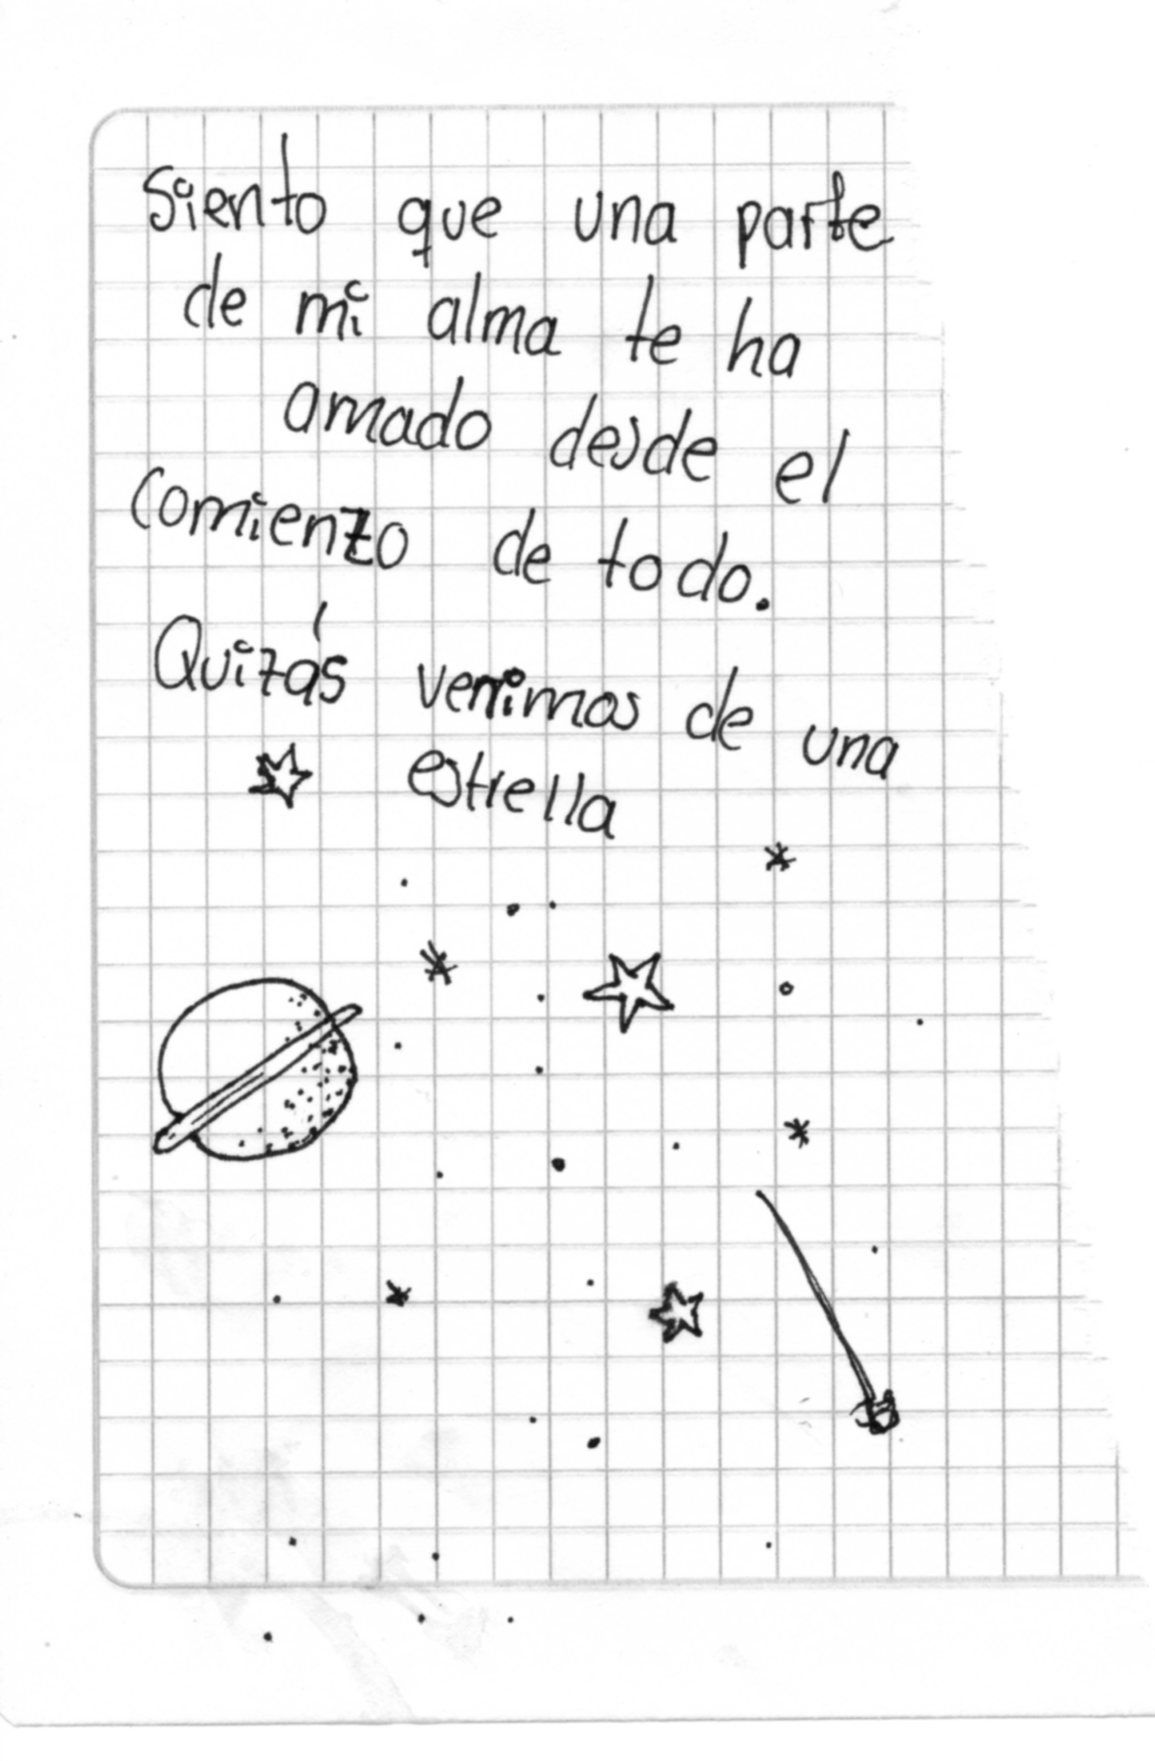 Siento que una parte
de mi alma te ha
amado desde el
comienzo de todo.
Quizás venimos de una
estrella